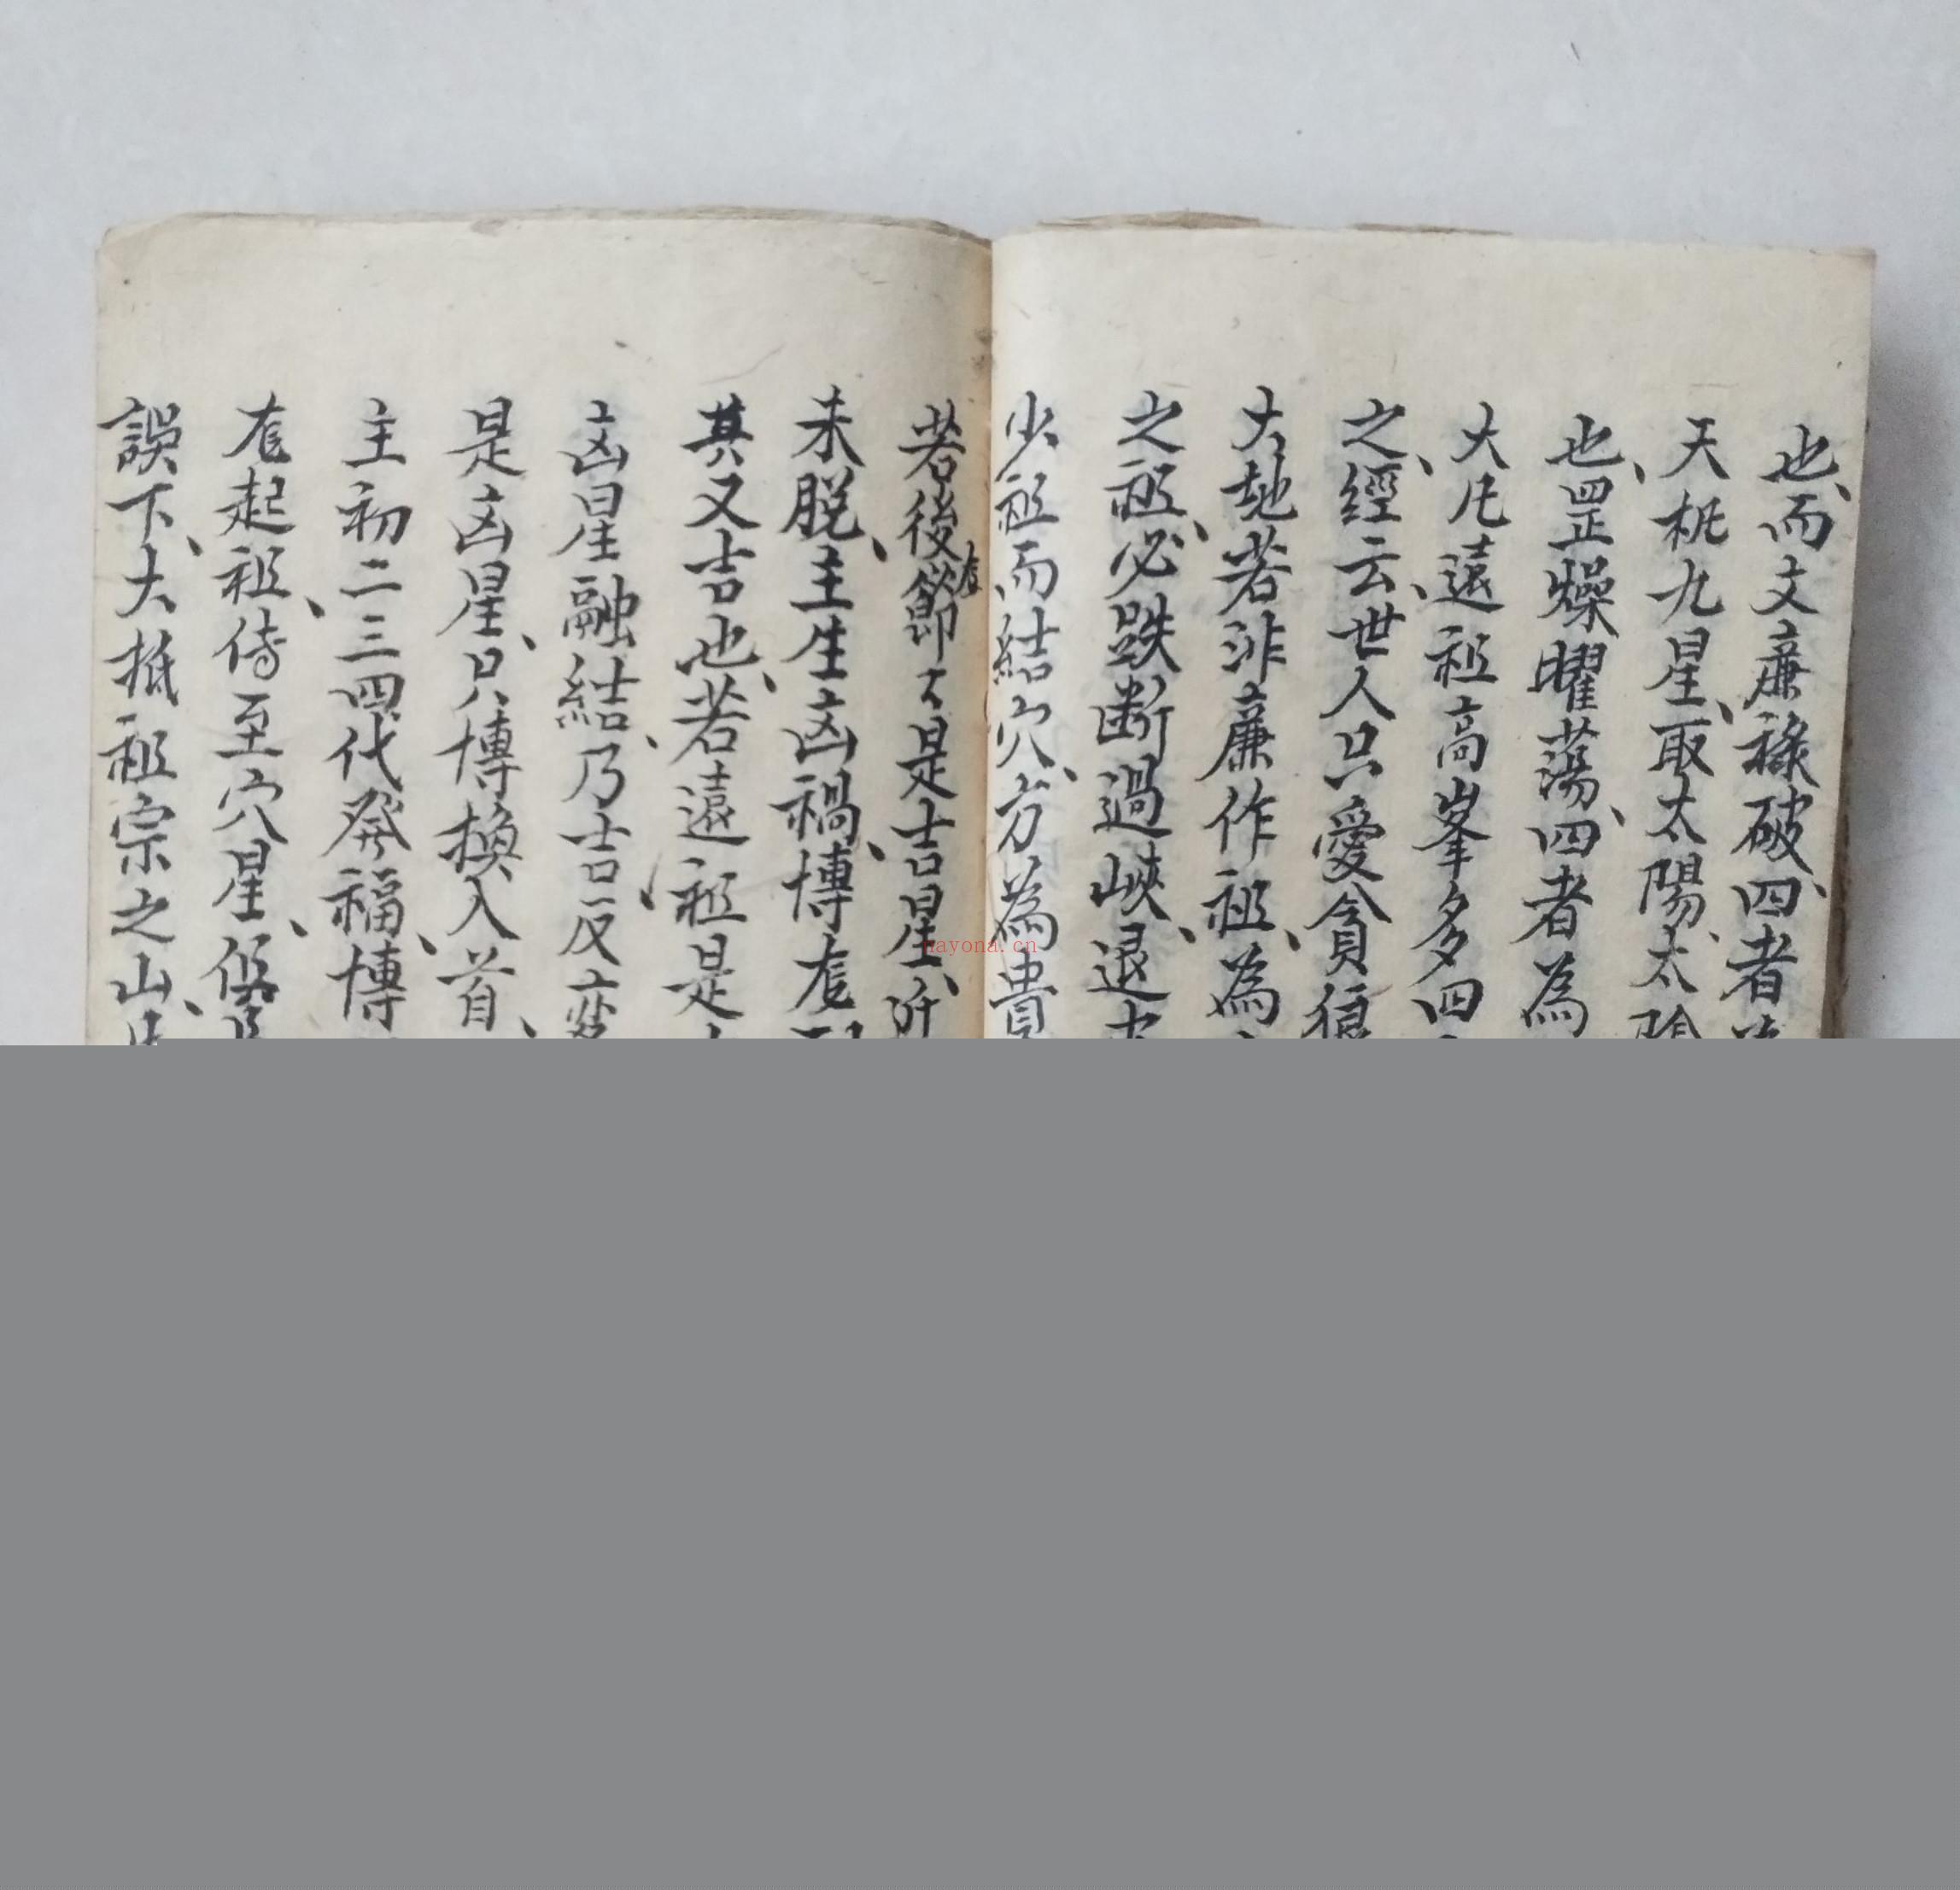 也、而文廉祿破、四者
天机九星、取太陽、太陰
也、罡燥曜蕩、四者為
大凡遠祖高峯多四
之、經云、世人只愛貪狼
大地若非廉作祖、為
之祖、必跌斷過峽、退
少祖而結穴、方為貴
若後節不是吉星、
未脱、主生凶禍、博
其又吉也、若遠祖是
凶星融結、乃吉、反變
是凶星、只博換入首、
主初二三四代發福、博
起祖、侍至穴星、
誤下、大抵祖宗之山、
nayona.cn